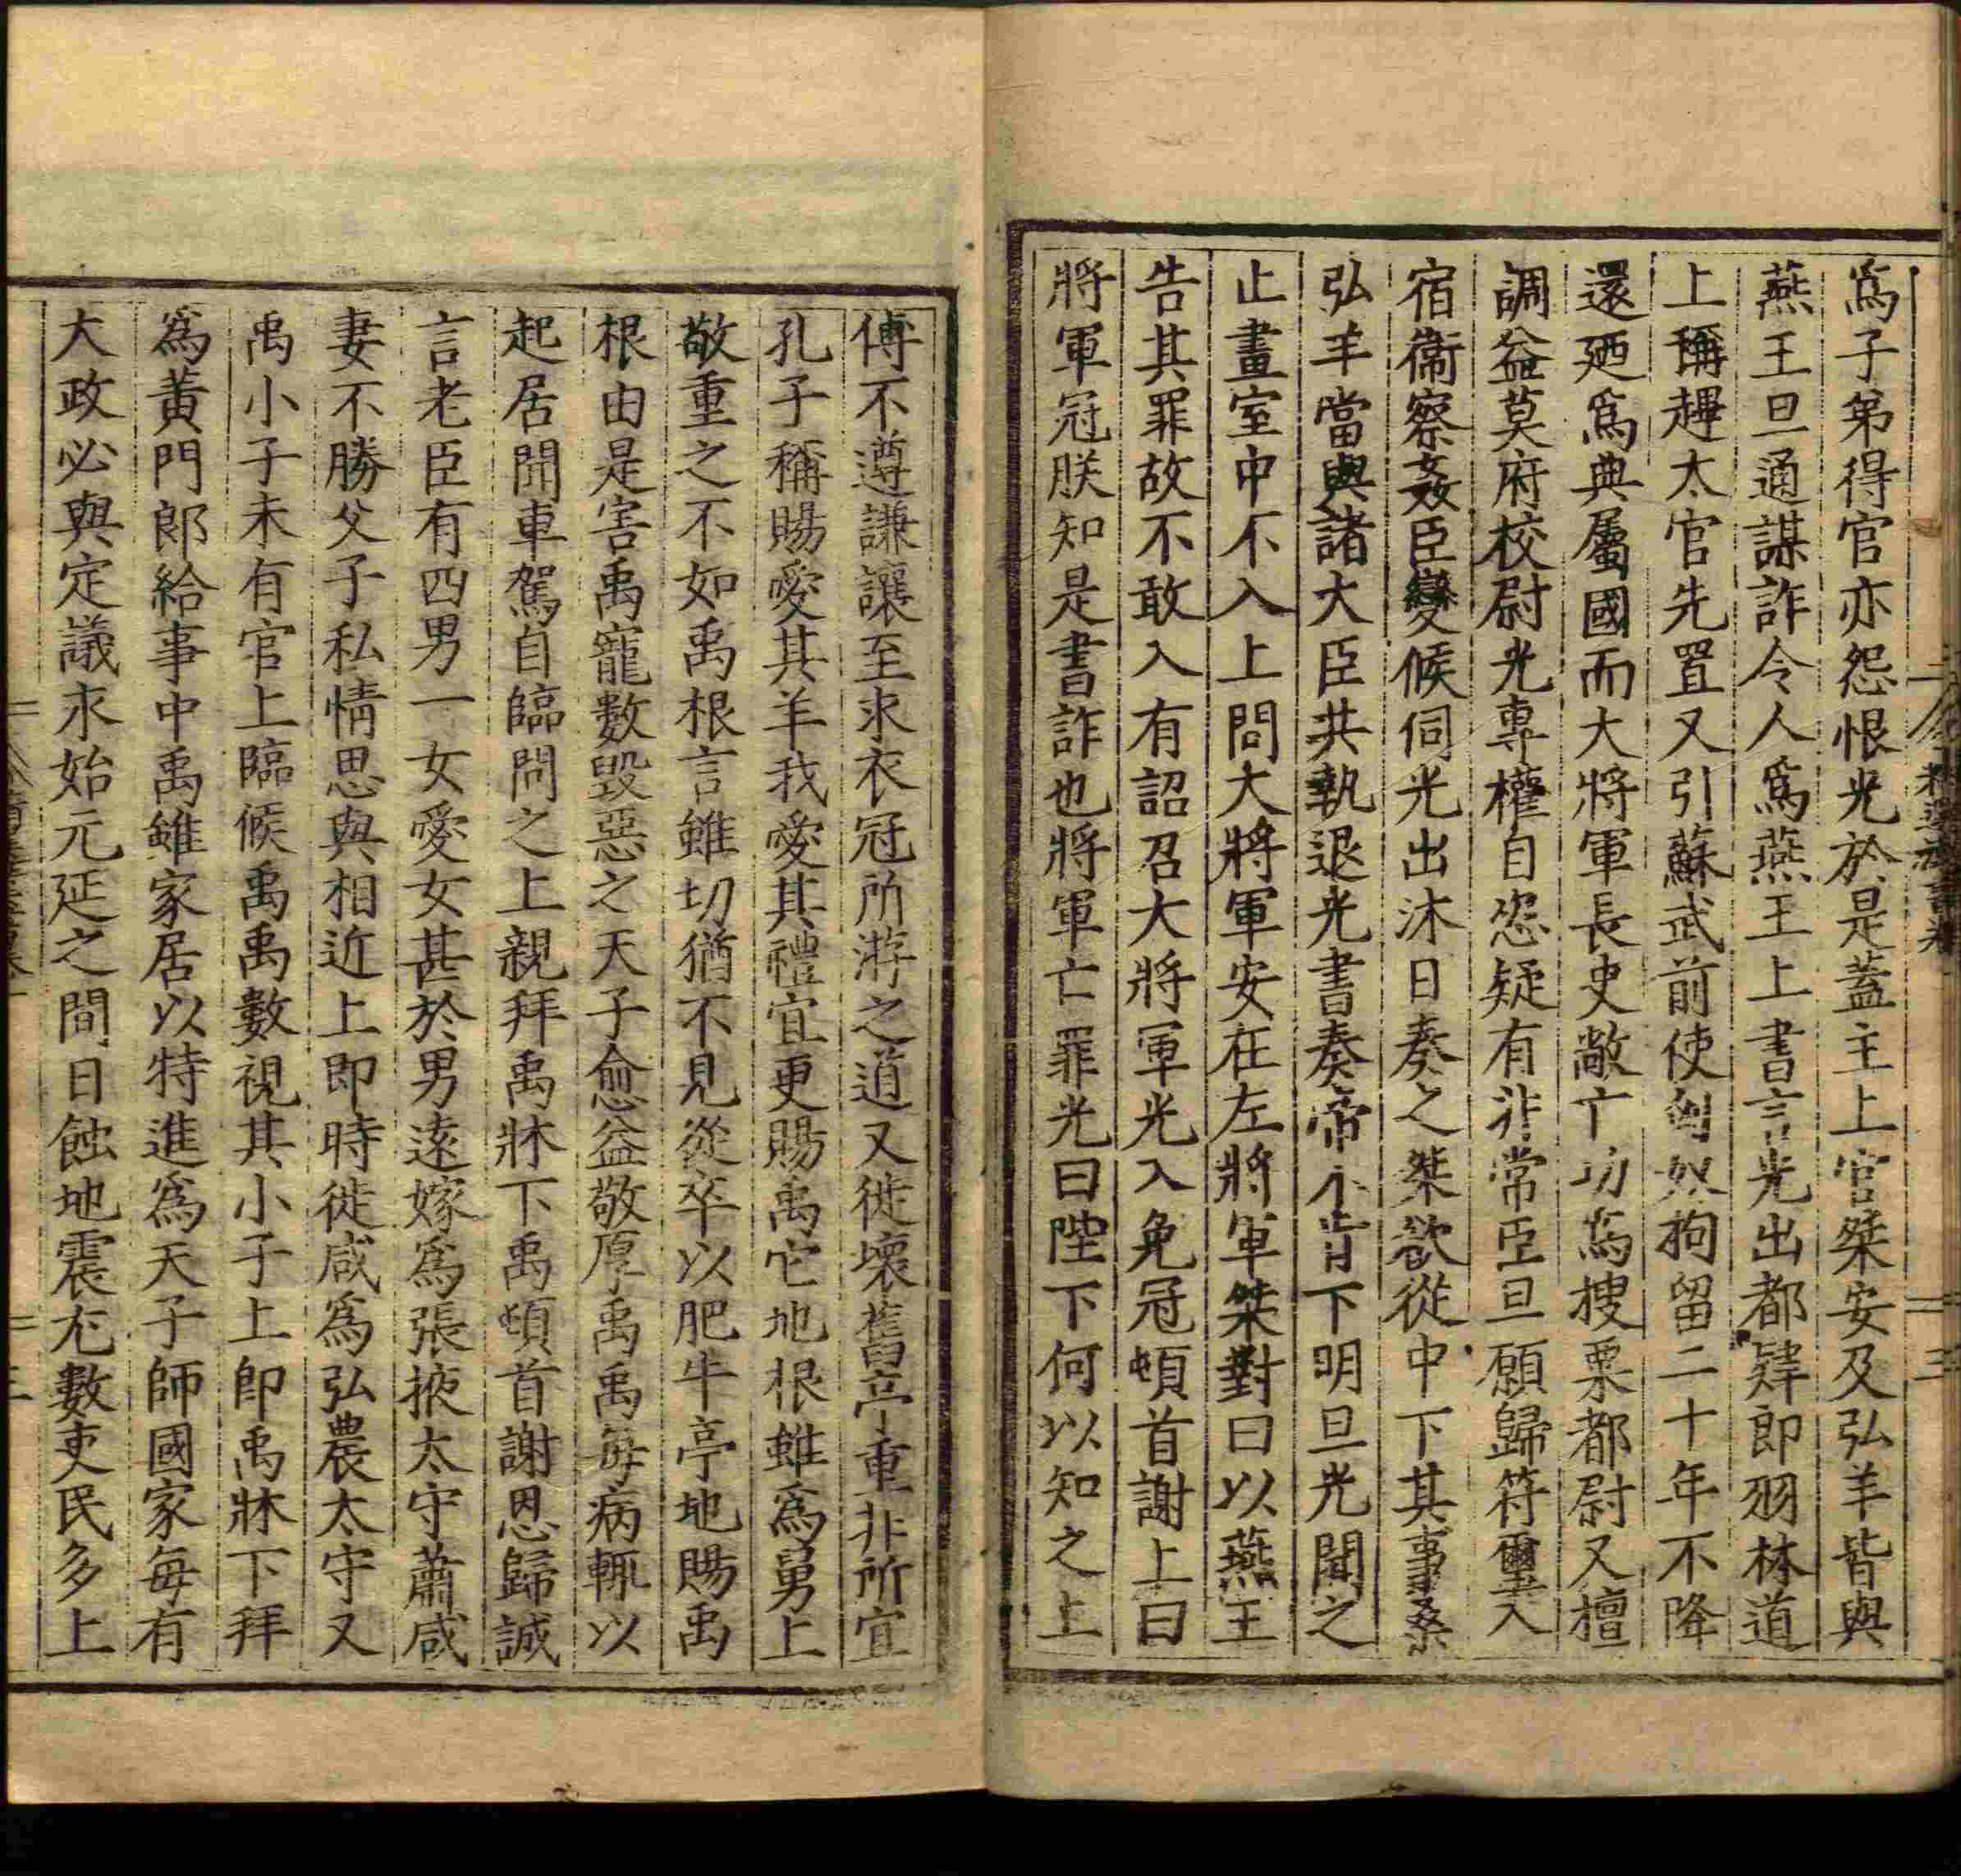 爲子弟得官亦怨恨光於是蓋主上官桀安及弘羊皆與
燕王旦通謀詐令人爲燕王上書言光出都肄郎羽林道
上稱趕太官先置又引蘇武前使匈奴拘留二十年不降
還廼爲典屬國而大將軍長史敞亡功爲搜粟都尉又擅
調益莫府校尉光專權自恣疑有非常臣旦願歸符璽入
宿衞察姦臣變候伺光出沐日奏之桀欲從中下其事桑
弘羊當與諸大臣共執退光書奏帝不肯下明旦光聞之
止畫室中不入上問大將軍安在左將軍桀對曰以燕王
告其罪故不敢入有詔召大將軍光入免冠頓首謝上曰
將軍冠朕知是書詐也將軍亡罪光曰陛下何以知之上
傅不遵謙讓至求衣冠所游之道又徙壞舊亭重非所宜
孔子稱賜愛其羊我愛其禮宜更賜禹它地根雖爲舅上
敬重之不如禹根言雖切猶不見從卒以肥牛亭地賜禹
根由是害禹寵數毀惡之天子愈益敬厚禹禹每病輒以
起居聞車駕自臨問之上親拜禹牀下禹頓首謝恩歸誠
言老臣有四男一女愛女甚於男遠嫁爲張掖太守蕭咸
妻不勝父子私情思與相近上即時徙咸爲弘農太守又
禹小子未有官上臨候禹禹數視其小子上即禹牀下拜
爲黃門郎給事中禹雖家居以特進爲天子師國家每有
大政必與定議永始元延之間日蝕地震尤數吏民多上